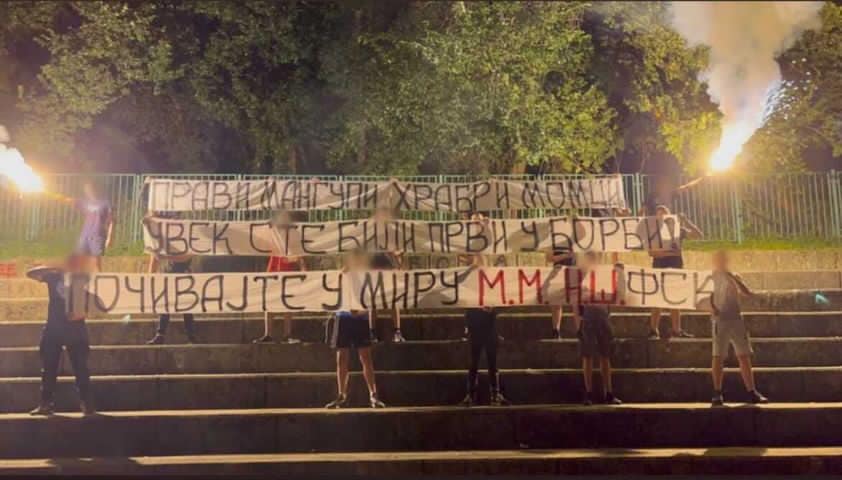 ПРАВИ МАНГУПИ ХРАБРИ МОМЦИ
УВЕК СТЕ БИЛИ ПРВИ У БОРБИ!
ПОЧИВАЈТЕ У МИРУ М.М. Н.Ш. ФСК